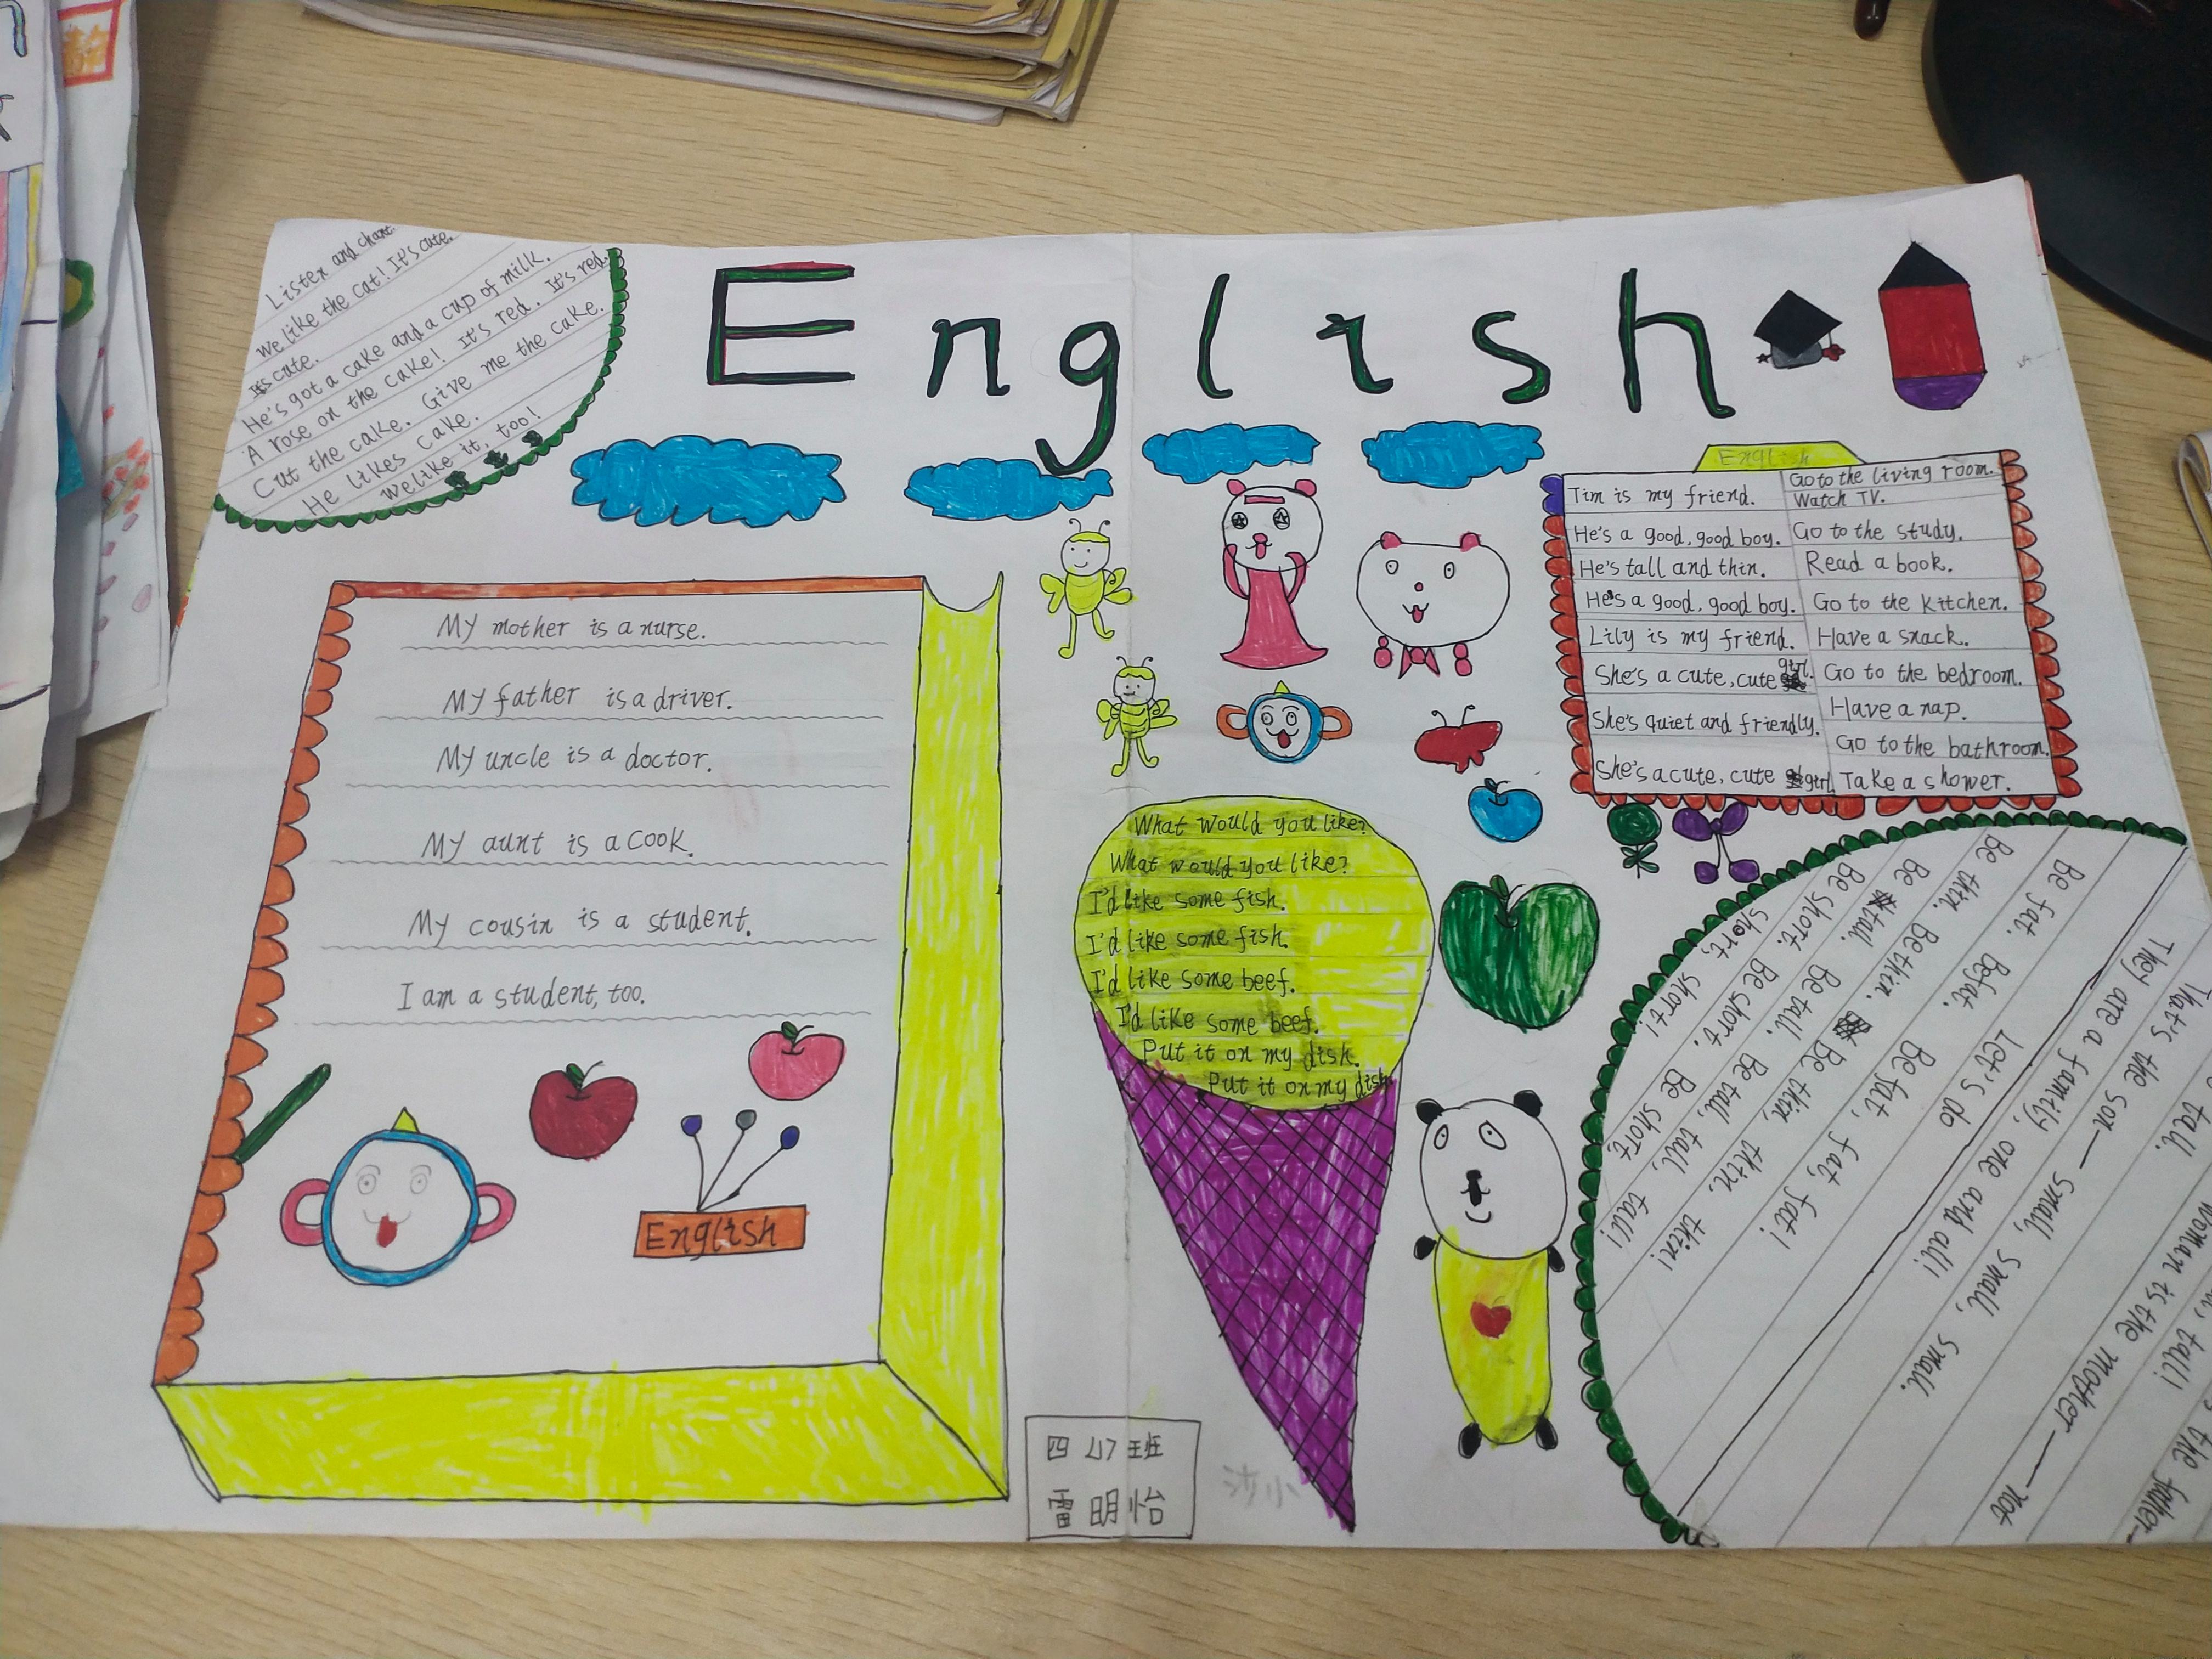 English
Listen and chant.
We like the cat! It's cute.
It's cute.
He's got a cake and a cup of milk.
A rose on the cake! It's red. It's red.
Cut the cake. Give me the cake.
He likes cake.
We like it, too!
My mother is a nurse.
My father is a driver.
My uncle is a doctor.
My aunt is a cook.
My cousin is a student.
I am a student, too.
English
What would you like?
What would you like?
I'd like some fish.
I'd like some fish.
I'd like some beef.
I'd like some beef.
Put it on my dish.
Put it on my dish
English
Tim is my friend.
He's a good, good boy.
He's tall and thin.
He's a good, good boy.
Lily is my friend.
She's a cute, cute girl.
She's quiet and friendly.
She's a cute, cute girl
Go to the living room.
Watch TV.
Go to the study.
Read a book.
Go to the kitchen.
Have a snack.
Go to the bedroom.
Have a nap.
Go to the bathroom.
Take a shower.
Let's do
Be fat. Be fat. Be fat, fat, fat!
Be thin. Be thin. Be thin, thin, thin!
Be tall. Be tall. Be tall, tall, tall!
Be short. Be short. Be short,
short, short!
the father—
tall!
woman is the mother—not
tall.
That's the son—small, small, small.
They are a family, one and all!
四(4)班
雷明怡